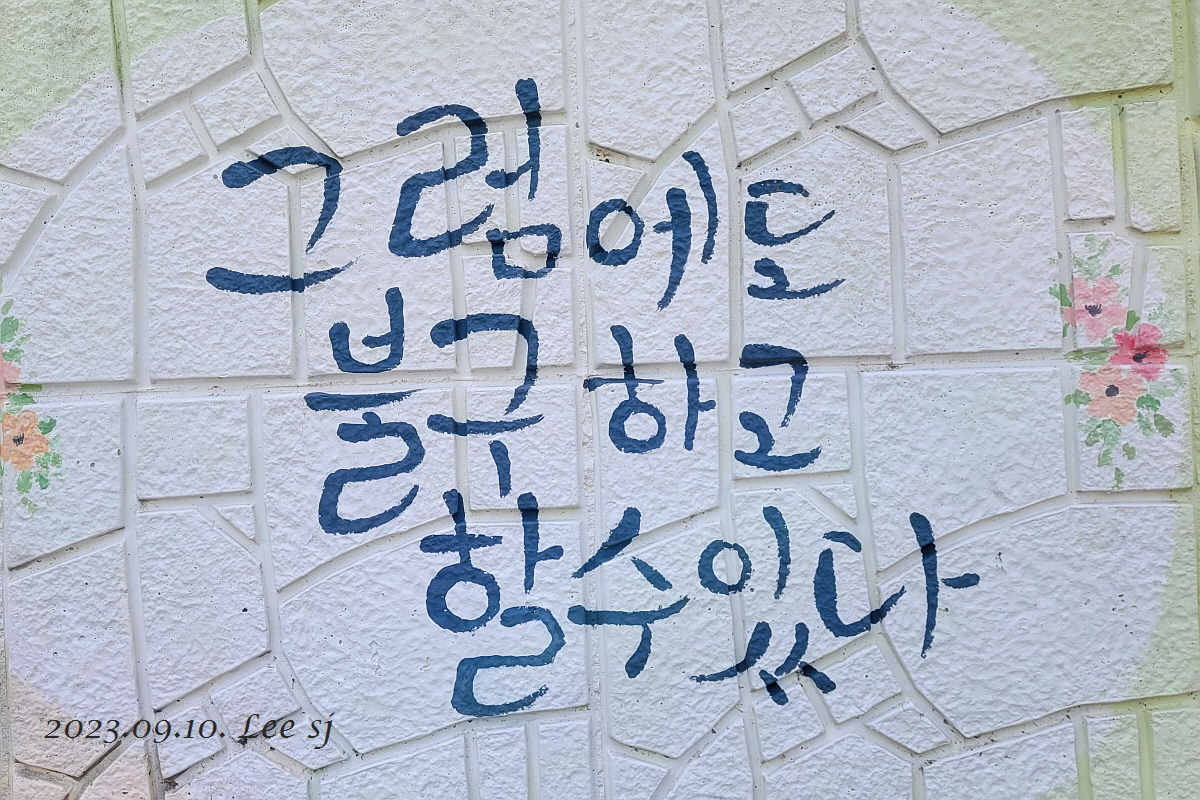 그럼에도
불구하고
할수있다
2023.09.10. Lee sj